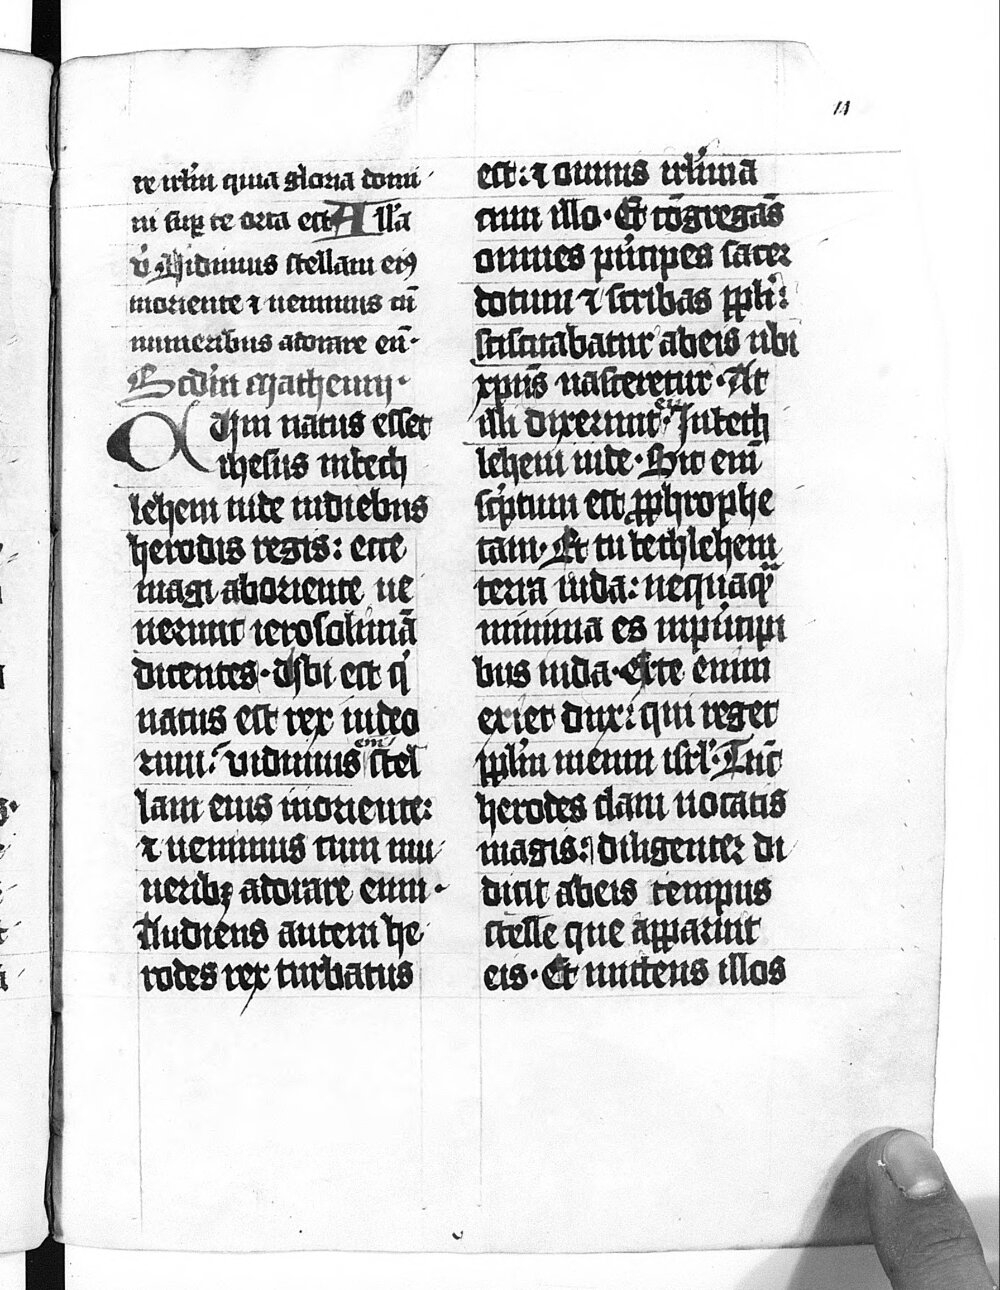 11
re irlm quia gloria domi
ni sup te orta est Alla
v Vidimus stellam ei9
in oriente ⁊ uenimus cū
muneribus adorare eū.
Scdm Matheum.
Cum natus esset
ihesus in bech
lehem iude in diebus
herodis regis: ecce
magi ab oriente ue
nerunt ierosolimā
dicentes. Ubi est q
natus est rex iudeo
rum: vidimus em stel
lam eius in oriente:
⁊ uenimus cum mu
neribꝫ adorare eum.
Audiens autem he
rodes rex turbatus
est: ⁊ omnis irlima
cum illo. Et cōgregās
omnes pncipes sacer
dotum ⁊ scribas ppli:
sciscitabatur ab eis ubi
xpus nasceretur. At
illi dixerunt ei. In bech
lehem iude. Sic em
scptum est p prophe
tam. Et tu bechlehem
terra iuda: nequaq
minima es in principi
bus iuda. Ex te enim
exiet dux: qui reget
pplm meum isrl. Tūc
herodes clam uocatis
magis: diligenter di
dicit ab eis tempus
stelle que apparuit
eis. Et mittens illos